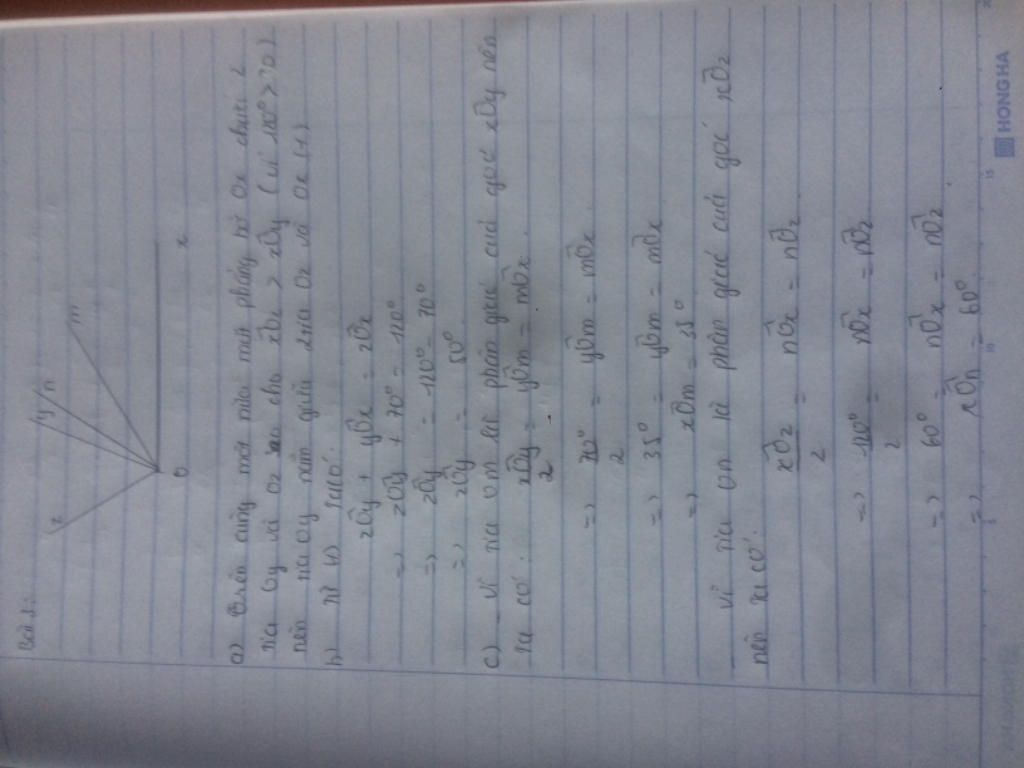 Bài 1:
z
y
n
m
O
x
a) Trên cùng một nửa mặt phẳng bờ Ox chứa 2
tia Oy và Oz cho xÔz > xÔy (vì 120° > 70)
nên tia Oy nằm giữa 2 tia Oz và Ox (1)
b) Từ (1) ta có:
zÔy + yÔx = zÔx
=> zÔy + 70° = 120°
=> zÔy = 120° - 70°
=> zÔy = 50°
c) - Vì tia Om là phân giác của góc xÔy nên
ta có: xÔy/2 = yÔm = mÔx
=> 70°/2 = yÔm = mÔx
=> 35° = yÔm = mÔx
=> xÔm = 35°
- Vì tia On là phân giác của góc xÔz
nên ta có:
xÔz/2 = nÔx = nÔz
=> 120°/2 = nÔx = nÔz
=> 60° = nÔx = nÔz
=> xÔn = 60°
HONG HA